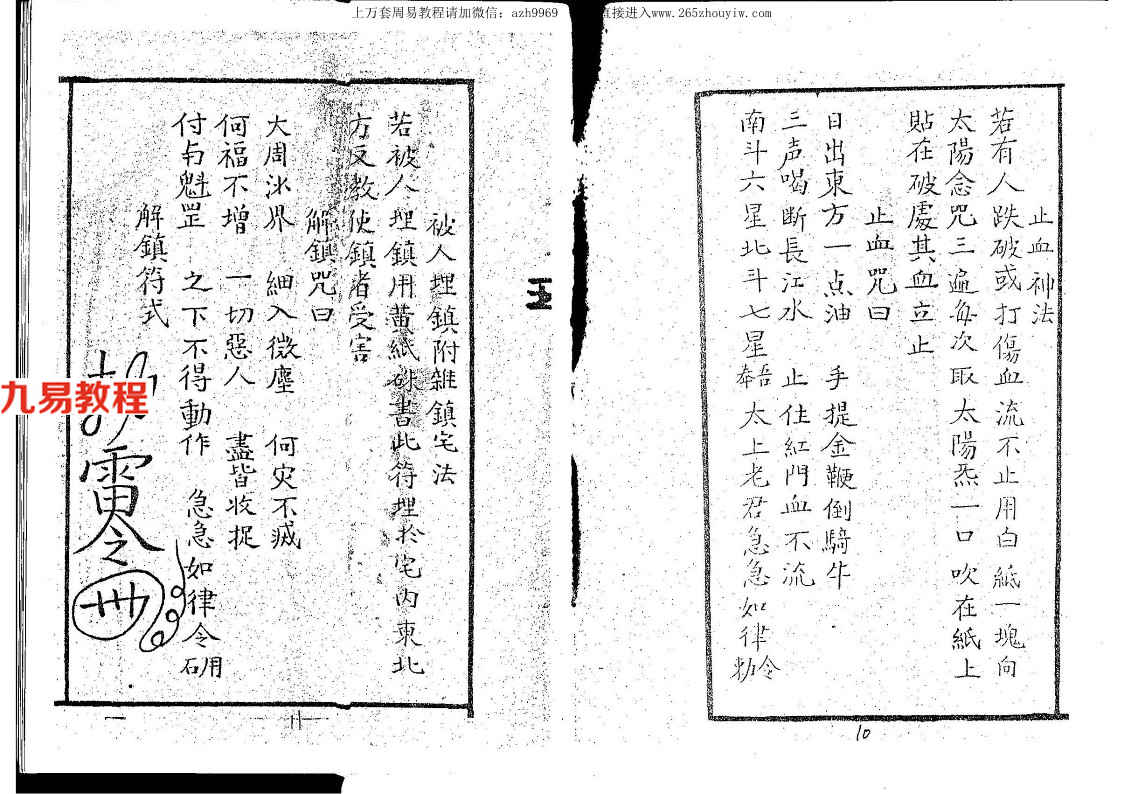 上万套周易教程请加微信：azh9969
直接进入www.265zhouyiw.com
止血神法
若有人跌破或打傷血流不止用白紙一塊向
太陽念咒三遍每次取太陽炁一口吹在紙上
貼在破處其血立止
止血咒曰
日出東方一点油 手提金鞭倒騎牛
三声喝断長江水 止住紅門血不流
南斗六星北斗七星 太上老君急急如律令
10
被人埋鎮附雜鎮宅法
若被人埋鎮用黄紙硃書此符埋於宅内東北
方反教使鎮者受害
解鎮咒曰
大周沙界 細入微塵 何灾不滅
何福不增 一切惡人 盡皆收捉
付与魁罡 之下不得動作 急急如律令
解鎮符式
雷令
九易教程